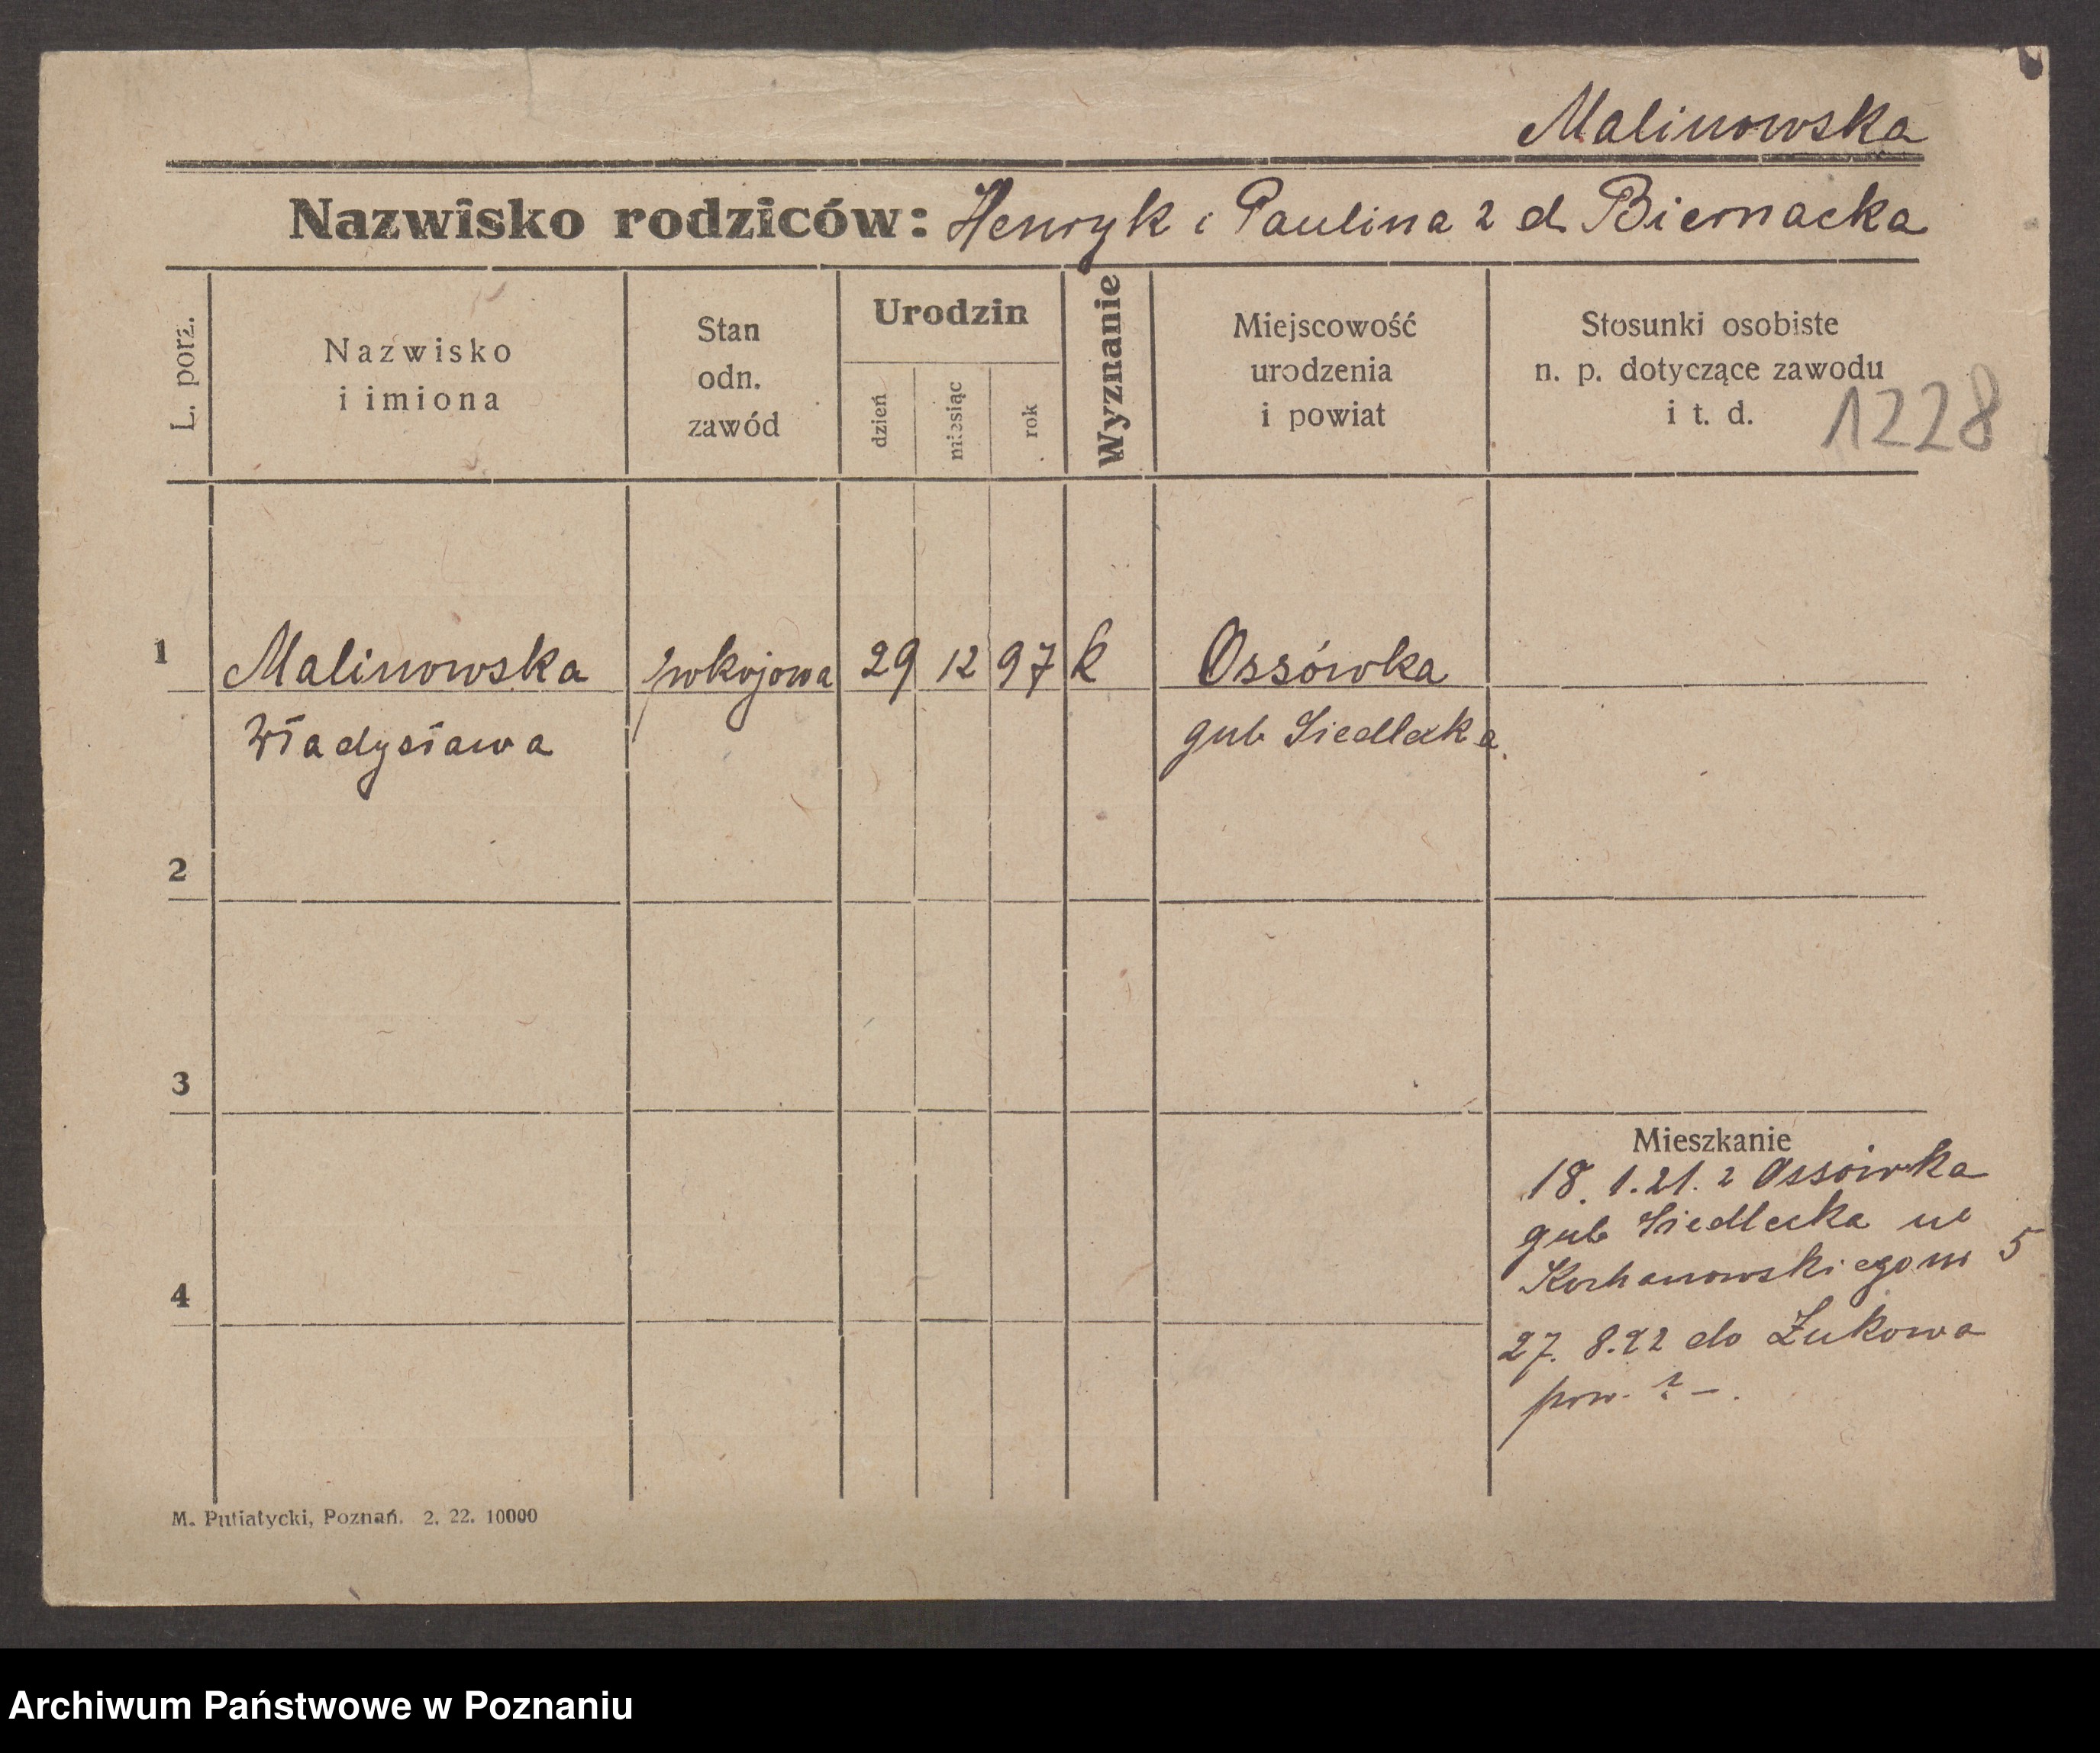 Malinowska
Nazwisko rodziców: Henryk i Paulina z d Biernacka
L. porz.
Nazwisko
i imiona
Stan
odn.
zawód
Urodzin
dzień
miesiąc
rok
Wyznanie
Miejscowość
urodzenia
i powiat
Stosunki osobiste
n. p. dotyczące zawodu
i t. d.
1228
1 Malinowska pokojowa 29 12 97 k Ossówka
Władysława gub Siedlecka
2
3
Mieszkanie
18. 1. 21. z Ossówka
gub Siedlecka ul
Kochanowskiego 5
4
27. 8. 22 do Żukowa
pow. ? —.
M. Putiatycki, Poznań. 2. 22. 10000
Archiwum Państwowe w Poznaniu